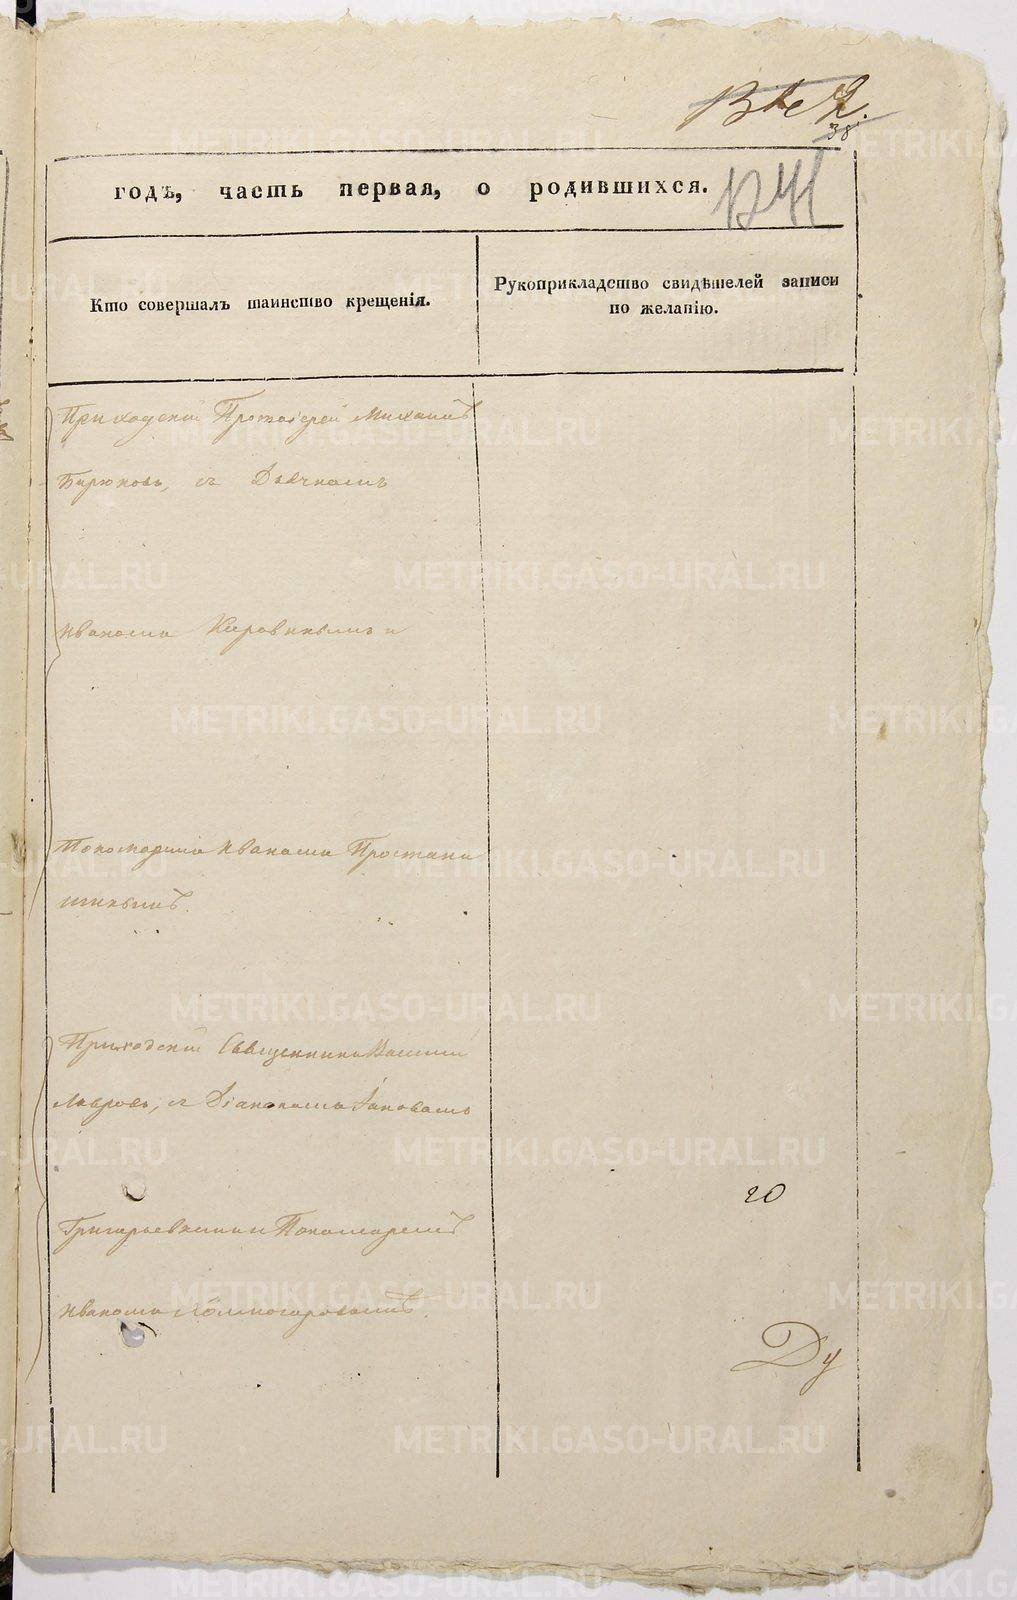 38
годъ, часть первая, о родившихся.
Кто совершалъ таинство крещенія.
Рукоприкладство свидѣтелей записи
по желанію.
Приходскій Протоіерей Михаилъ
Бирюковъ, съ Дьячкомъ
Иваномъ Коровинымъ и
Пономаремъ Иваномъ
Приходскій Священникъ Василій
Лавровъ, съ Діакономъ Іаковомъ
Григорьевымъ и Пономаремъ
Иваномъ Холмогоровымъ.
20
Ду
METRIKI.GASO-URAL.RU